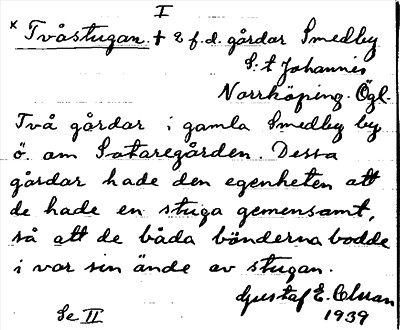 I
x Tvåstugan. + 2 f.d. gårdar Smedby
S:t Johannes
Norrköping. Ögl.
Två gårdar i gamla Smedby by
ö. om Sataregården. Dessa
gårdar hade den egenheten att
de hade en stuga gemensamt,
så att de båda bönderna bodde
i var sin ände av stugan.
Gustaf E. Olsson
Se II 1939